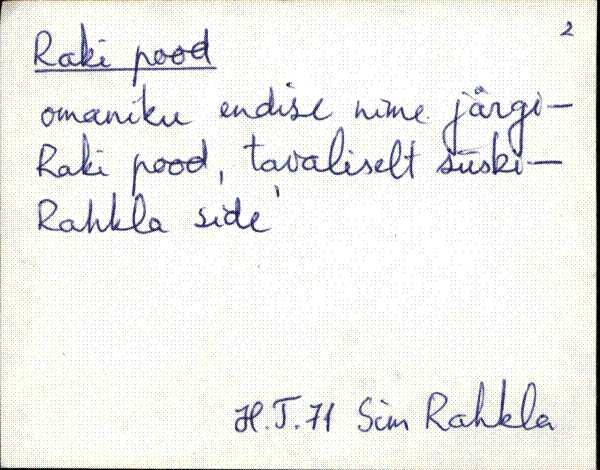 2
Raki pood
omaniku endise nime järgi —
Raki pood, tavaliselt süski —
Rahkla side'
H.T. 71 Sim Rahkla